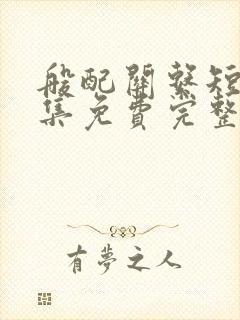 般配關繫短
集免費完整
有夢之人